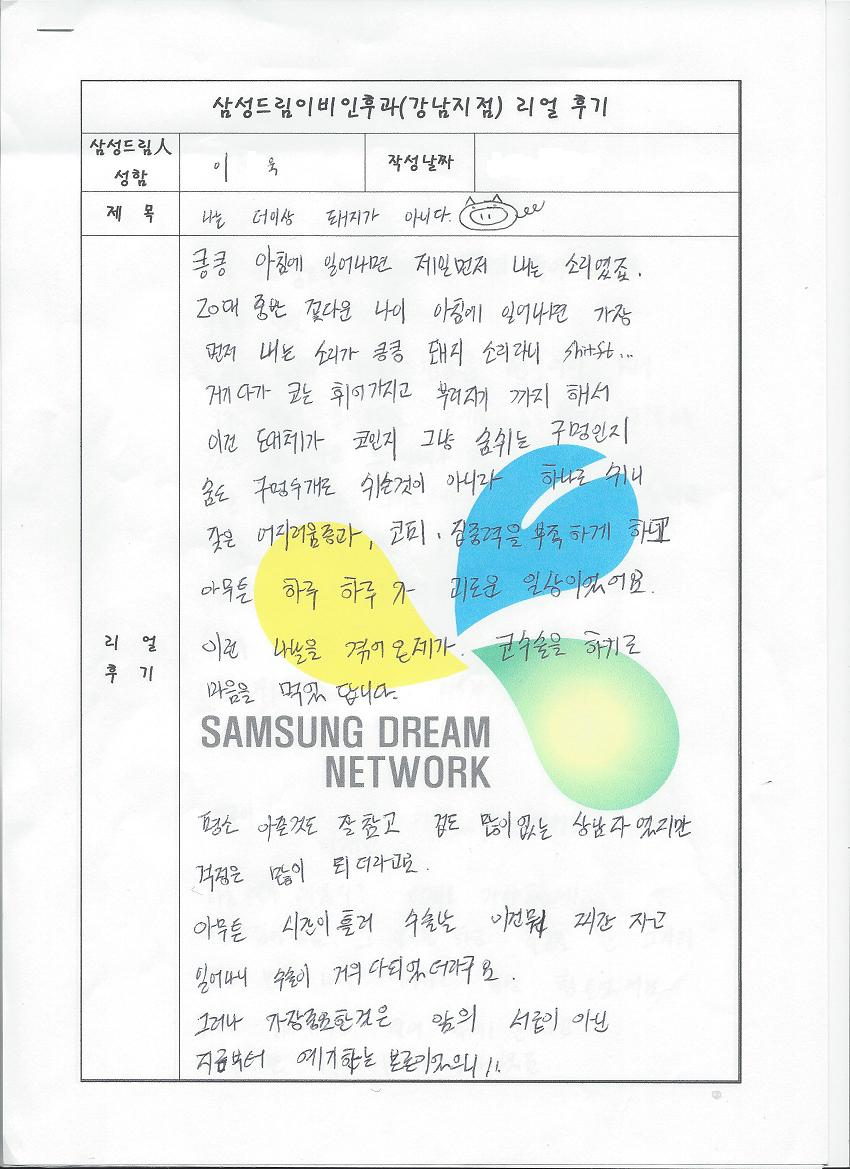 삼성드림이비인후과(강남지점) 리얼 후기
삼성드림人 성함
이 욱
작성날짜
제 목
나는 더이상 돼지가 아니다.
리 얼
후 기
킁킁 아침에 일어나면 제일먼저 내는 소리였죠.
20대 중반 꽃다운 나이 아침에 일어나면 가장
먼저 내는 소리가 킁킁 돼지 소리라니
거기다가 코는 휘어가지고 부러지기 까지 해서
이건 도대체가 코인지 그냥 숨쉬는 구멍인지
숨도 구멍두개로 쉬는것이 아니라 하나로 쉬니
잦은 어지러움증과, 코피, 집중력을 부족하게 하고
아무튼 하루 하루가 괴로운 일상이었어요.
이런 나날을 겪어온제가. 코수술을 하기로
마음을 먹었답니다.
SAMSUNG DREAM
NETWORK
평소 아픈것도 잘참고 겁도 많이없는 상남자였지만
걱정은 많이 되더라고요.
아무튼 시간이흘러 수술날 이건뭐 2시간 자고
일어나니 수술이 거의다되었더라구요.
그러나 가장중요한것은 앞의 서론이 아닌
지금부터 얘기하는 본론이있으니!!